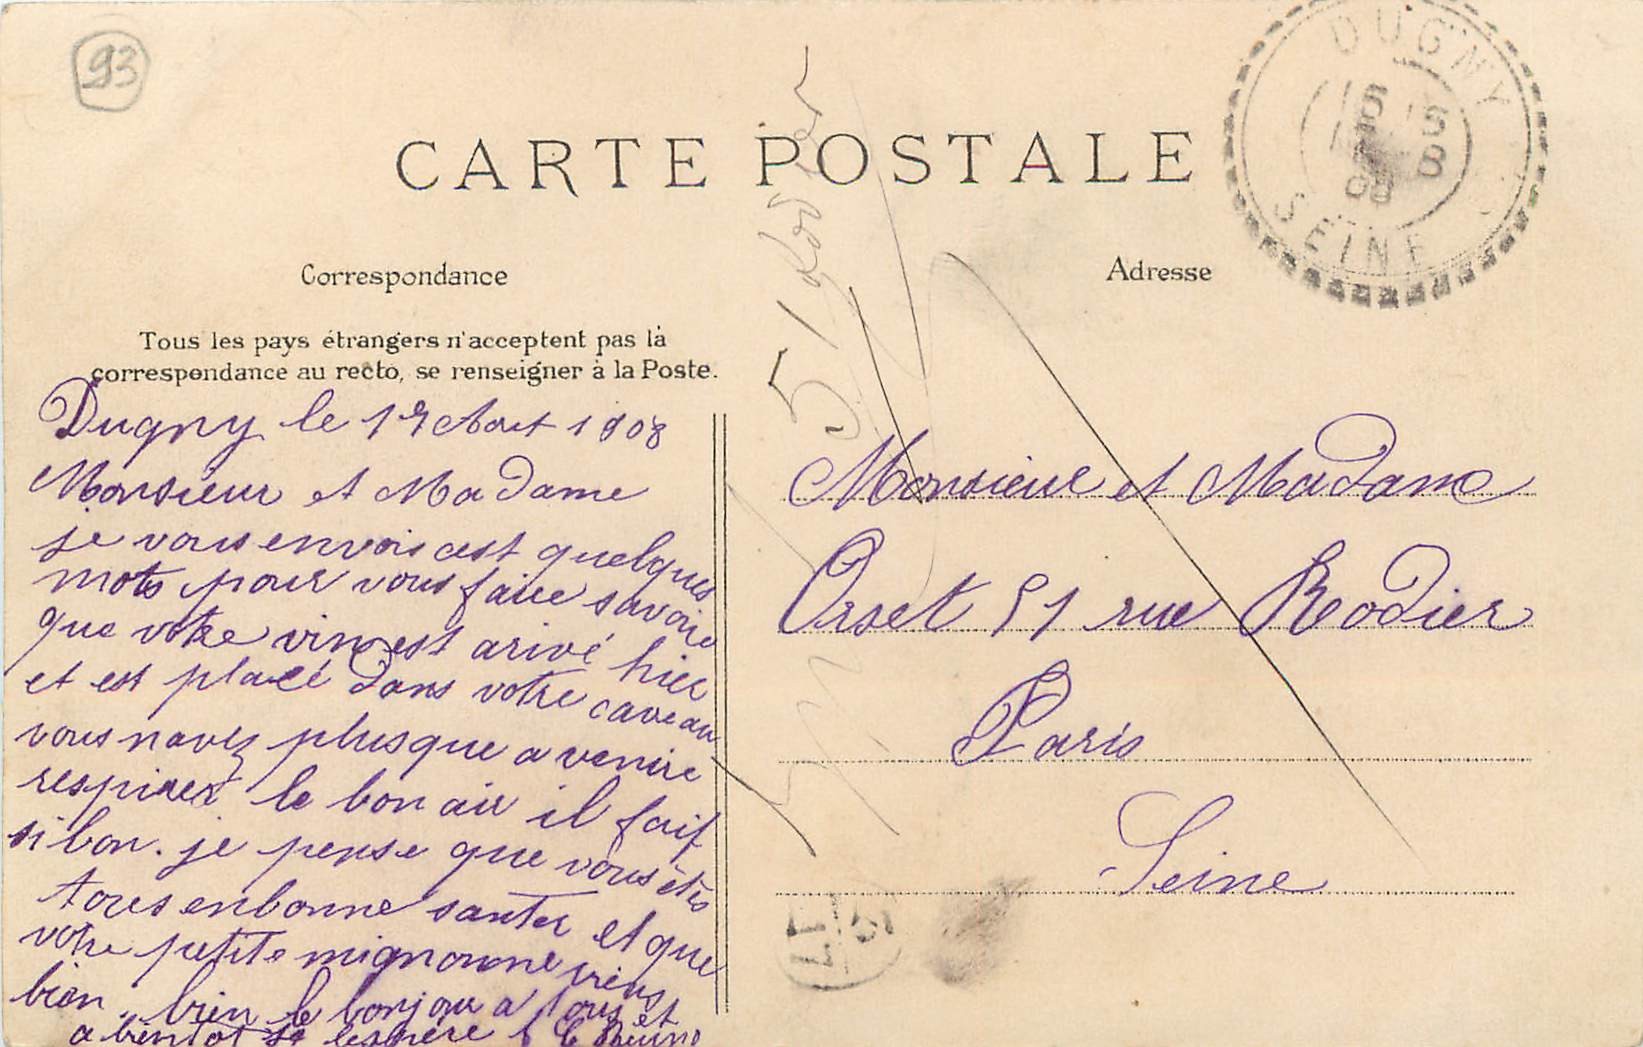 93
CARTE POSTALE
DUGNY
5 5
8
08
SEINE
Correspondance
Adresse
Tous les pays étrangers n'acceptent pas la
correspondance au recto, se renseigner à la Poste.
Dugny le 17 Aout 1908
Monsieur et Madame
je vous envois cest quelques
mots pour vous faire savoire
que votre vin est arivé hier
et est placé dans votre caveau
vous navez plusque a venire
respirer le bon air il fait
si bon. je pense que vous étes
tous enbonne santer et que
votre petite mignonne viens
bien. bien le bonjour a tous et
a bientot je lespère
51 Rodier
Monsieur et Madame
Orset 51 rue Rodier
Paris
Seine